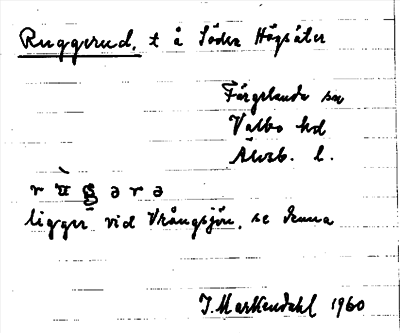 Ruggerud, t å Södra Högsäter
Färgelanda sn
Valbo hd
Älvsb. l.
ligger vid Vrångsjön, se denna
J. Markendahl 1960